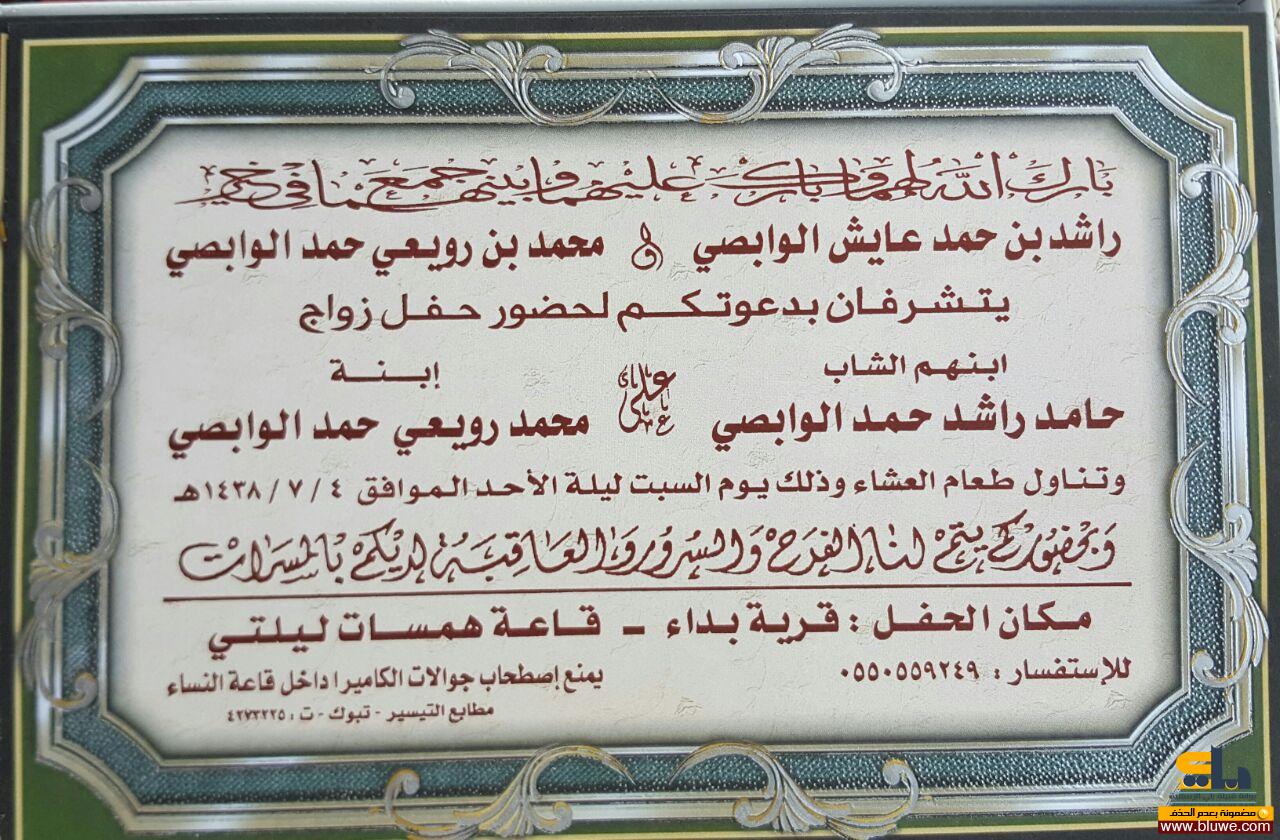 بارك الله لهما وبارك عليهما وجمع بينهما في خير
راشد بن حمد عايش الوابصي و محمد بن رويعي حمد الوابصي
يتشرفان بدعوتكم لحضور حفل زواج
ابنهم الشاب على إبنة
حامد راشد حمد الوابصي محمد رويعي حمد الوابصي
وتناول طعام العشاء وذلك يوم السبت ليلة الأحد الموافق ٤ / ٧ / ١٤٣٨هـ
وبحضوركم يتم لنا الفرح والسرور والعاقبة لديكم بالمسرات
مكان الحفل : قرية بداء - قاعة همسات ليلتي
للإستفسار : ٠٥٥٠٥٥٩٢٤٩ يمنع إصطحاب جوالات الكاميرا داخل قاعة النساء
مطابع التيسير - تبوك - ت : ٤٢٧٣٢٢٥
مضمونة بعدم الحذف
www.bluwe.com